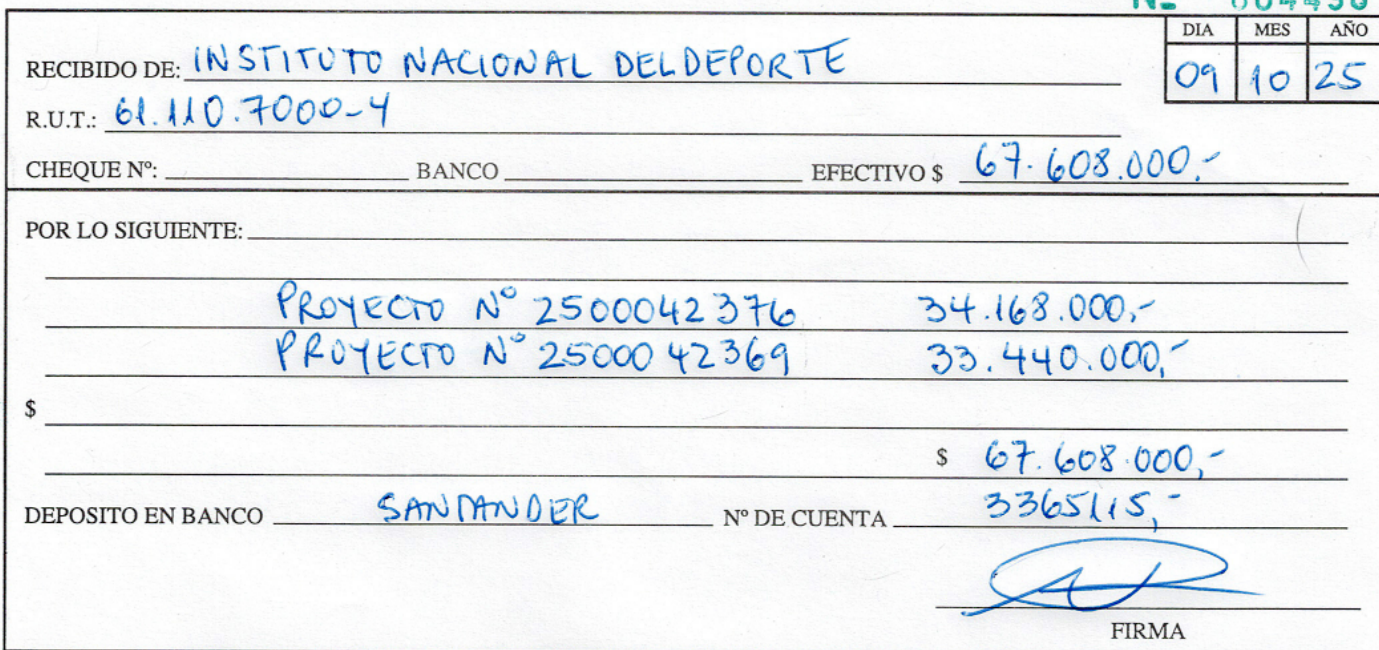 DIA MES AÑO
RECIBIDO DE: INSTITUTO NACIONAL DEL DEPORTE 09 10 25
R.U.T.: 61.110.7000-4
CHEQUE Nº: BANCO EFECTIVO $ 67.608.000.-
POR LO SIGUIENTE:
PROYECTO N° 2500042376 34.168.000,-
PROYECTO N° 2500042369 33.440.000,-
$
$ 67.608.000,-
DEPOSITO EN BANCO SANTANDER Nº DE CUENTA 3365115,-
FIRMA